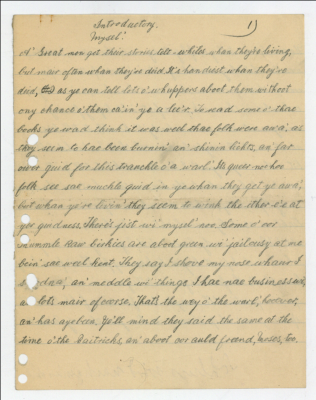 Introductory.
1)
"Myself."
A' Great men get their stories tell - whiles whan they're living,
but mair aften whan they're deid. It's handiest whan they're
deid, as ye can tell lots o' whuppers aboot them without
ony chance o' them ca'in' ye a lee'r. To read some o' thae
books ye wad think it was weel thae folk were awa', as
they seem to hae been burnin' an' shinin' lichts, an' far
ower guid for this wratchle o' a warl'. It's queer noo hoo
folk see sae muckle guid in ye whan they get ye awa',
but whan ye're livin' they seem to wish the ither o'e at
yer guidness. There's jist wi' mysel' noo. Some o' oor
Raw birkies are aboot green wi' jailousy at me
bein' sae weel kent. They say I shove my nose whaur I
an' meddle wi' things I hae nae business wi',
an' lots mair of coorse. That's the wey o' the warl', hooever,
an' has aye been. Ye'll mind they said the same at the
time o' the Paitrichs, an' aboot oor auld freend, Moses, too.